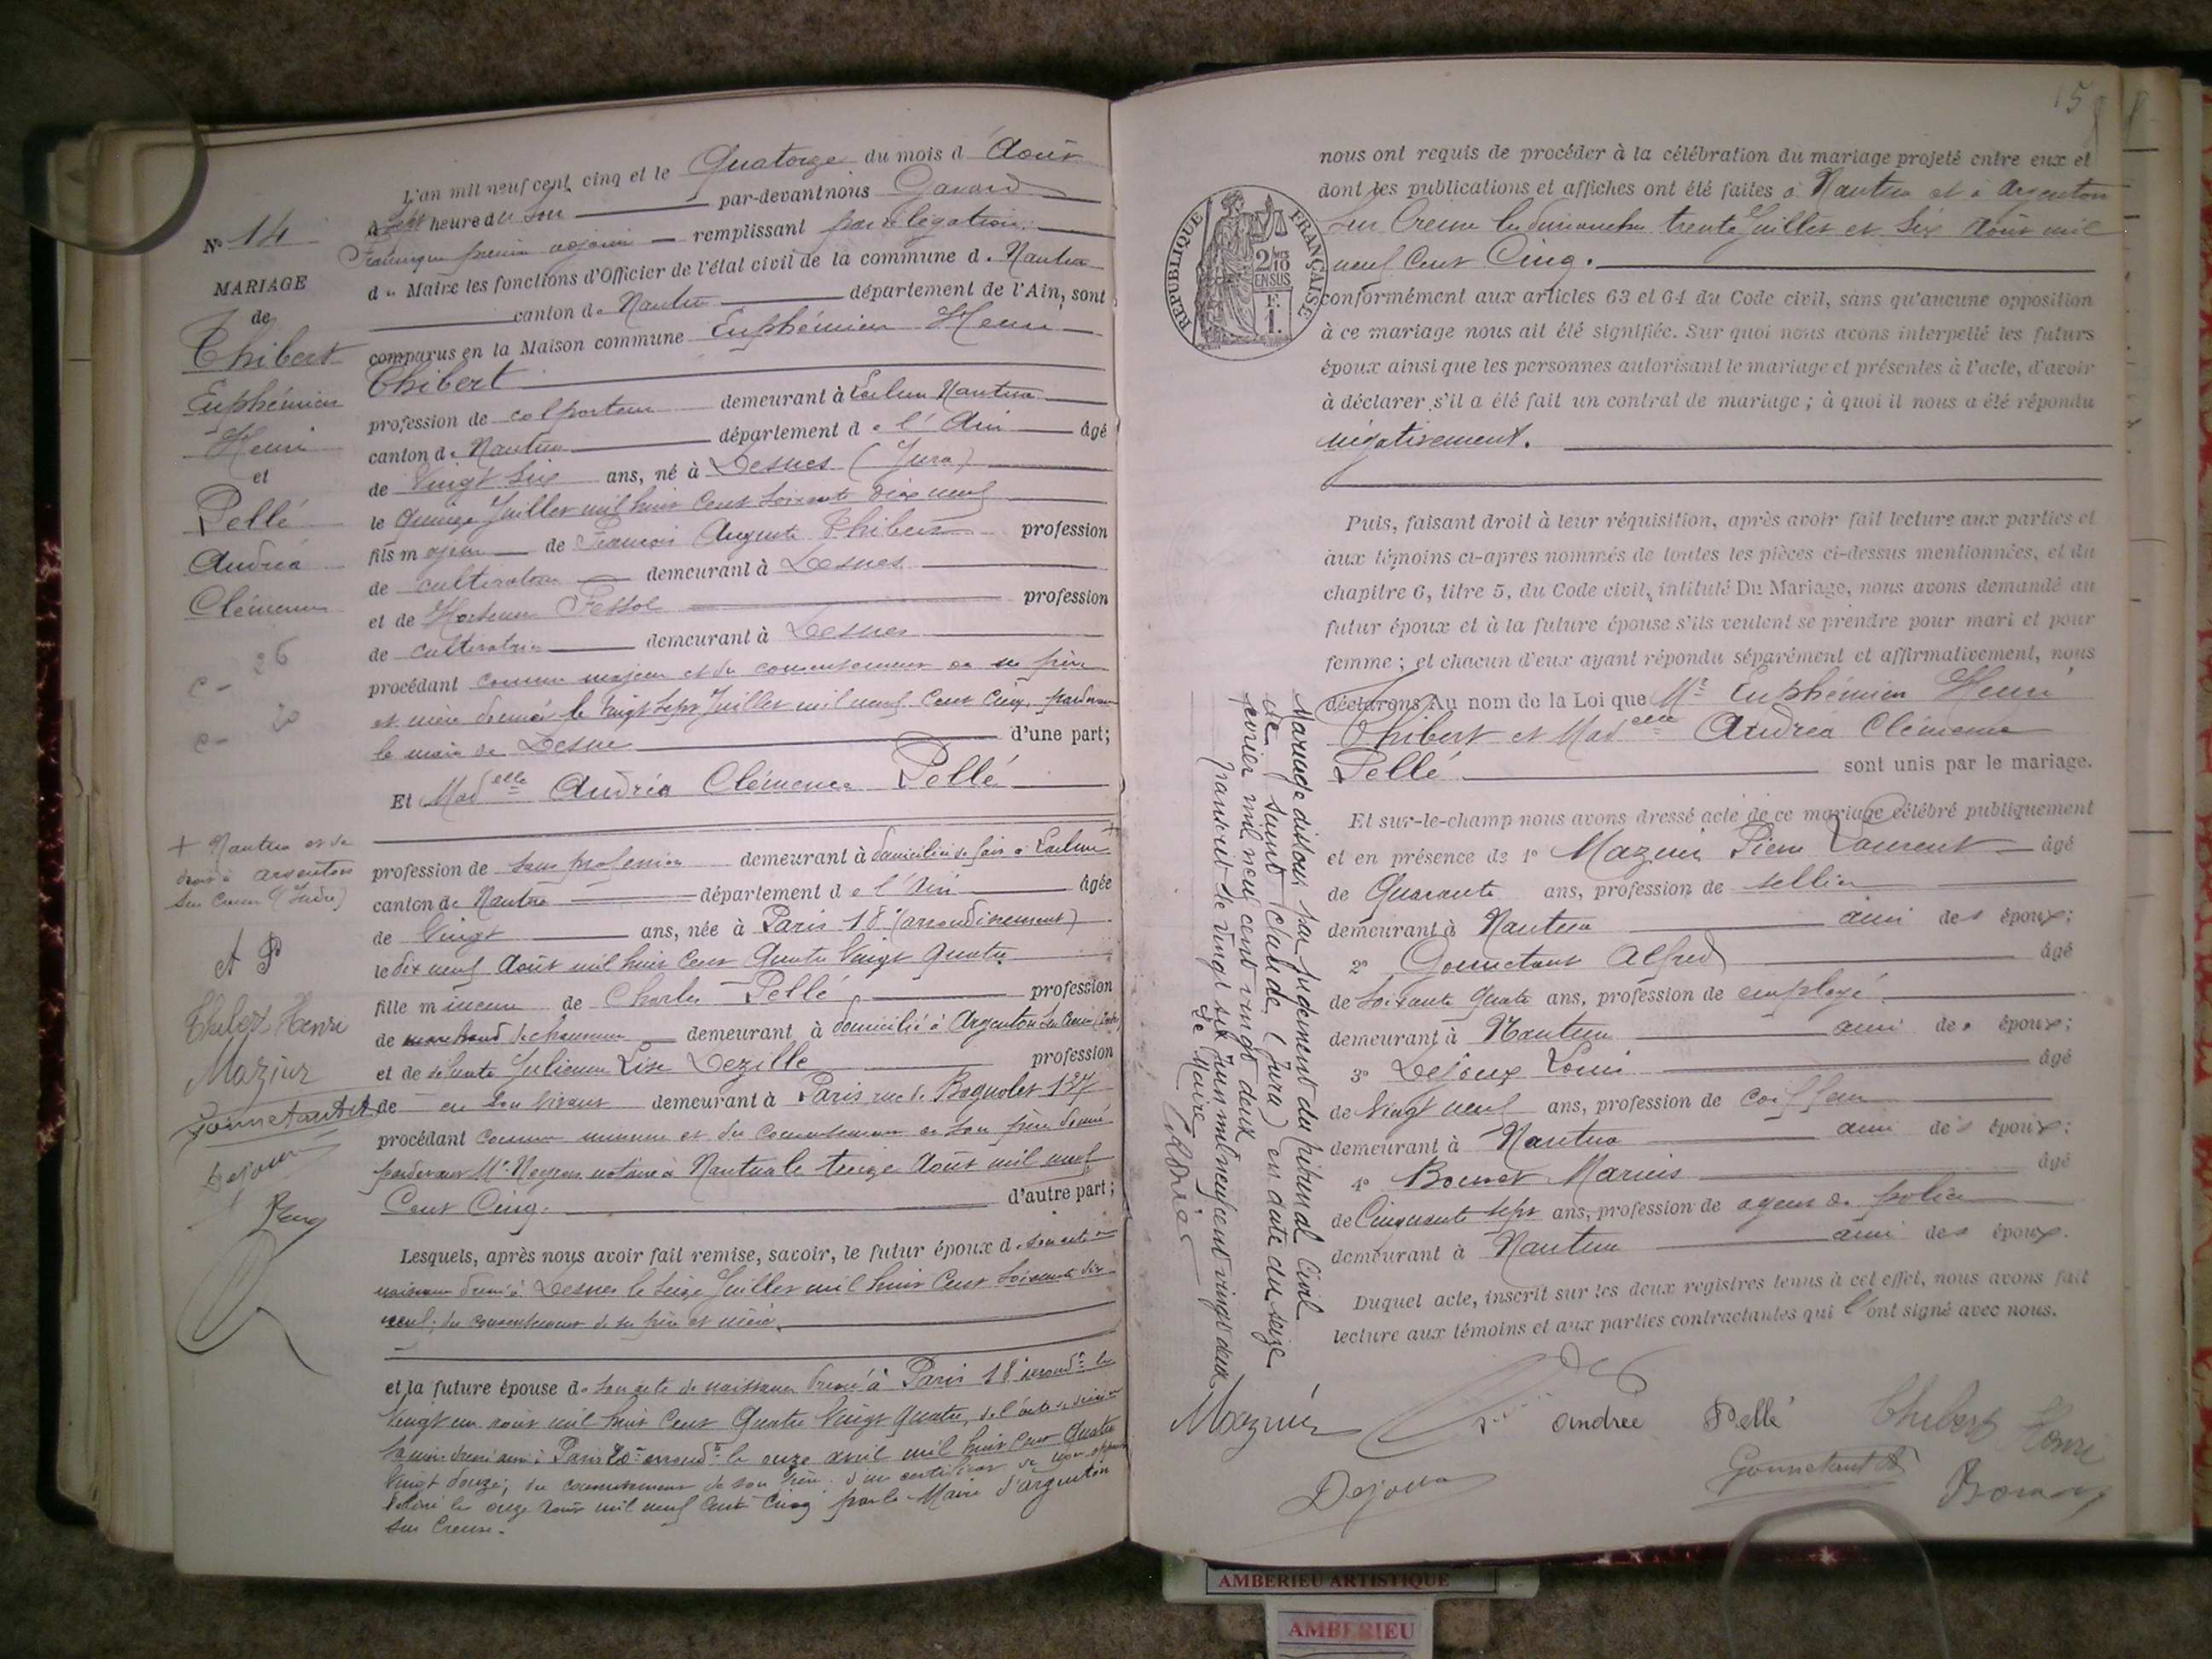 L'an mil neuf cent cinq et le Quatorze du mois d'Août
à Sept heures du Soir par-devant nous Gavard
premier adjoint remplissant par délégation
du Maire les fonctions d'Officier de l'état civil de la commune de Nantua
canton de Nantua département de l'Ain, sont
comparus en la Maison commune Euphémien Henri
Thibert
profession de colporteur demeurant à Nantua
canton de Nantua département de l'Ain âgé
de Vingt Six ans, né à Desnes (Jura)
le quinze Juillet mil huit Cent Soixante dix neuf
fils majeur de François Auguste Thibert profession
de cultivateur demeurant à Desnes
et de profession
de cultivatrice demeurant à Desnes
procédant comme majeur et du consentement de ses père
et mère donné le Vingt Sept Juillet mil neuf Cent Cinq, pardevant
le maire de Desnes d'une part;
Et Madelle Andréa Clémence Pellé
profession de Sans profession demeurant à domiciliée de fait à
canton de Nantua département de l'Ain âgée
de Vingt ans, née à Paris 18e (arrondissement)
le dix neuf Août mil huit Cent Quatre Vingt Quatre
fille mineure de Charles Pellé, profession
de marchand de chaussures demeurant à domicilié à Argenton Sur Creuse (Indre)
et de défunte Julienne Lise Dezille profession
de en Son Vivant demeurant à Paris, rue de Bagnolet 137
procédant comme mineure et du consentement de Son père donné
pardevant Me Neyron notaire à Nantua le treize Août mil neuf
Cent Cinq. d'autre part;
Lesquels, après nous avoir fait remise, savoir, le futur époux de Son acte de
naissance dressé à Desnes le Seize Juillet mil huit Cent Soixante dix
neuf; du consentement de ses père et mère.
et la future épouse de Son acte de naissance dressé à Paris 18e arrondt le
Vingt un Août mil huit Cent Quatre Vingt Quatre, de l'acte de décès de
Sa mère dressé aussi à Paris 20e arrondt le onze avril mil huit Cent Quatre
Vingt douze; du consentement de son père. d'un certificat de non opposition
délivré le onze Août mil neuf Cent Cinq par le Maire d'Argenton
Sur Creuse.
No 14
MARIAGE
de
Thibert
Euphémien
Henri
et
Pellé
Andréa
Clémence
26
C-
20
C-
+ Nantua et de
droit à Argenton
Sur Creuse (Indre)
A P
Thibert Henri
Maznir
Gonnetant A
Dejoux
15
nous ont requis de procéder à la célébration du mariage projeté entre eux et
dont les publications et affiches ont été faites à Nantua et à Argenton
Sur Creuse les dimanches trente Juillet et Six Août mil
neuf Cent Cinq.
conformément aux articles 63 et 64 du Code civil, sans qu'aucune opposition
à ce mariage nous ait été signifiée. Sur quoi nous avons interpellé les futurs
époux ainsi que les personnes autorisant le mariage et présentes à l'acte, d'avoir
à déclarer s'il a été fait un contrat de mariage; à quoi il nous a été répondu
négativement.
RÉPUBLIQUE FRANÇAISE
2/10
EN SUS
1 F.
Puis, faisant droit à leur réquisition, après avoir fait lecture aux parties et
aux témoins ci-après nommés de toutes les pièces ci-dessus mentionnées, et du
chapitre 6, titre 5, du Code civil, intitulé Du Mariage, nous avons demandé au
futur époux et à la future épouse s'ils veulent se prendre pour mari et pour
femme; et chacun d'eux ayant répondu séparément et affirmativement, nous
déclarons Au nom de la Loi que Mr Euphémien Henri
Thibert et Madelle Andréa Clémence
Pellé sont unis par le mariage.
Et sur-le-champ nous avons dressé acte de ce mariage célébré publiquement
et en présence de 1° Maznir Pierre Laurent âgé
de Quarante ans, profession de sellier
demeurant à Nantua ami des époux;
2° Gonnetant Alfred âgé
de Soixante Quatre ans, profession de employé
demeurant à Nantua ami des époux;
3° Dejoux Louis âgé
de Vingt neuf ans, profession de Coiffeur
demeurant à Nantua ami des époux;
4° Marius âgé
de Cinquante Sept ans, profession de agent de police
demeurant à Nantua ami des époux.
Duquel acte, inscrit sur les deux registres tenus à cet effet, nous avons fait
lecture aux témoins et aux parties contractantes qui l'ont signé avec nous.
Mariage dissous par jugement du tribunal Civil
de Saint Claude (Jura) en date du seize
février mil neuf cent vingt deux
transcrit le vingt six Juin mil neuf cent vingt deux
Le Maire
Maznir
andrée Pellé
Thibert Henri
Dejoux
Gonnetant A
AMBERIEU ARTISTIQUE
AMBERIEU